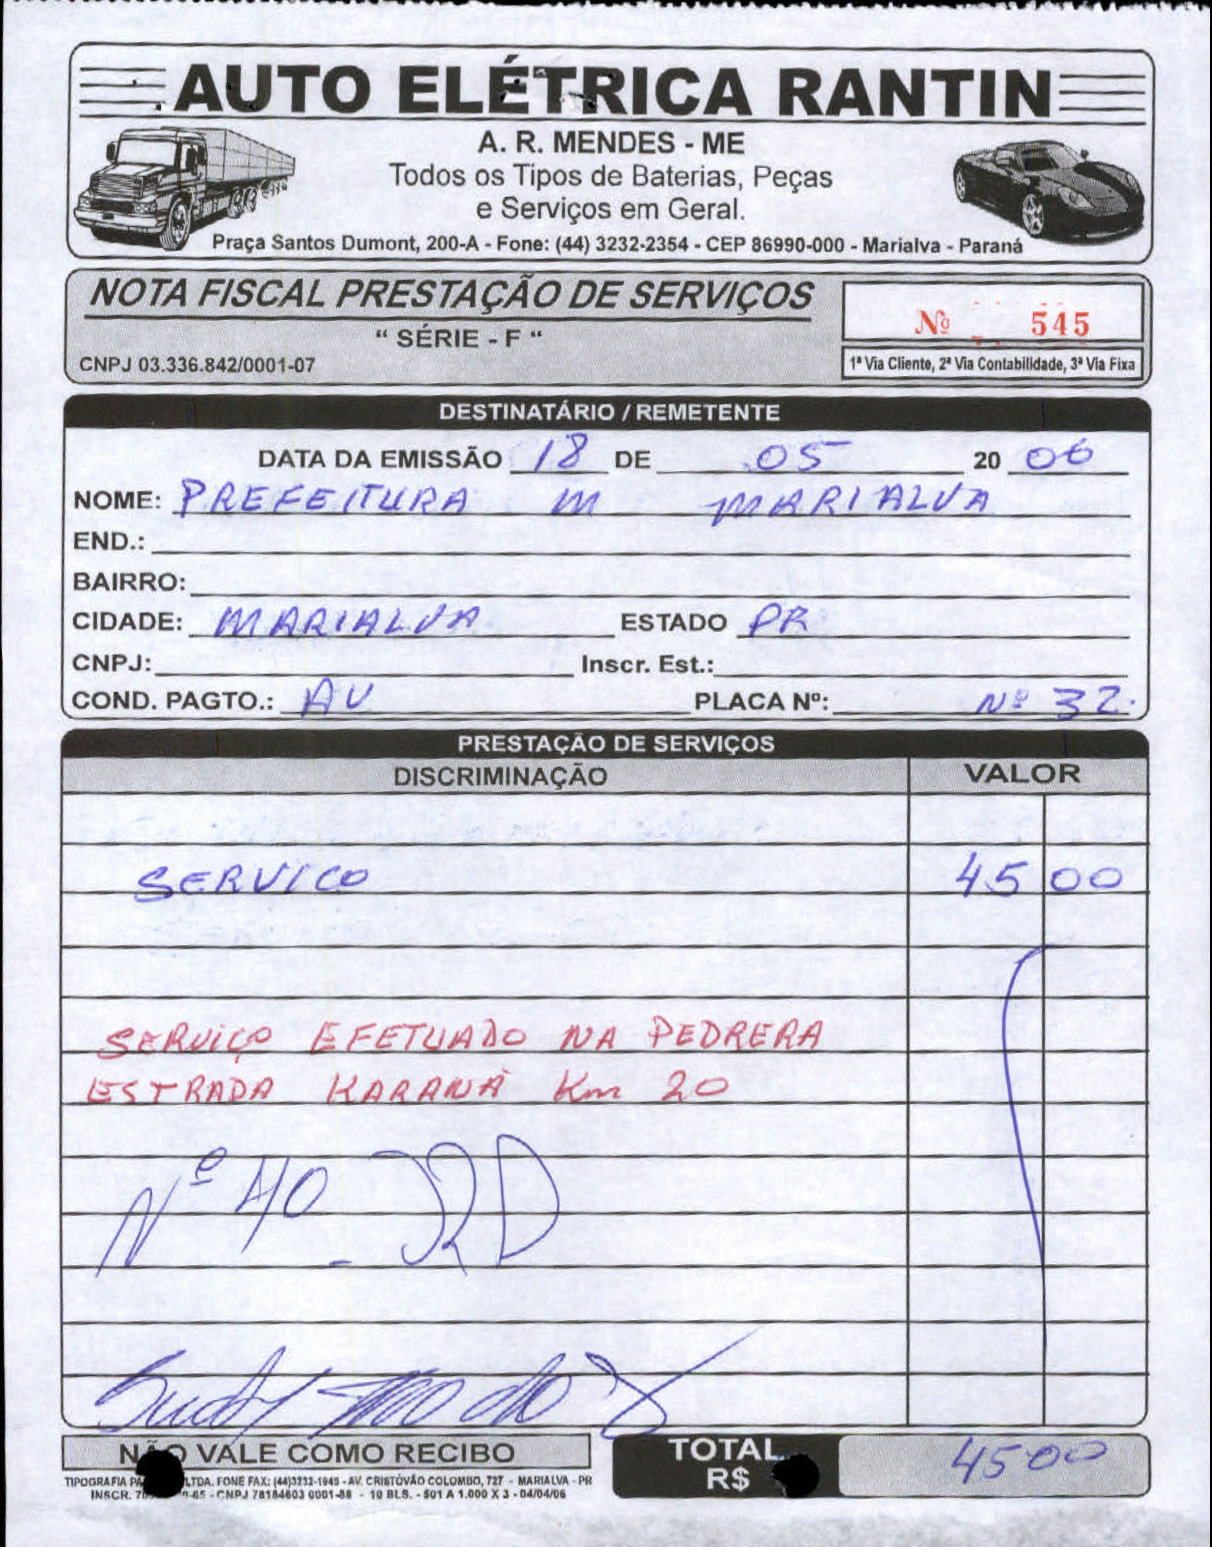 AUTO ELÉTRICA RANTIN
A. R. MENDES - ME
Todos os Tipos de Baterias, Peças
e Serviços em Geral.
Praça Santos Dumont, 200-A - Fone: (44) 3232-2354 - CEP 86990-000 - Marialva - Paraná
NOTA FISCAL PRESTAÇÃO DE SERVIÇOS
" SÉRIE - F "
Nº 545
CNPJ 03.336.842/0001-07
1ª Via Cliente, 2ª Via Contabilidade, 3ª Via Fixa
DESTINATÁRIO / REMETENTE
DATA DA EMISSÃO 18 DE 05 20 06
NOME: PREFEITURA M MARIALVA
END.:
BAIRRO:
CIDADE: MARIALVA ESTADO PR
CNPJ: Inscr. Est.:
COND. PAGTO.: AV PLACA Nº: Nº 32.
PRESTAÇÃO DE SERVIÇOS
DISCRIMINAÇÃO VALOR
SERVICO 45 00
SERVIÇO EFETUADO NA PEDRERA
ESTRADA KARANÁ Km 20
Nº 40 - 32D
NÃO VALE COMO RECIBO
TOTAL
R$ 4500
TIPOGRAFIA LTDA. FONE FAX: (44)3232-1949 - AV. CRISTÓVÃO COLOMBO, 727 - MARIALVA - PR
INSCR. - CNPJ 78184603 0001-88 - 10 BLS. - 501 A 1.000 X 3 - 04/04/06